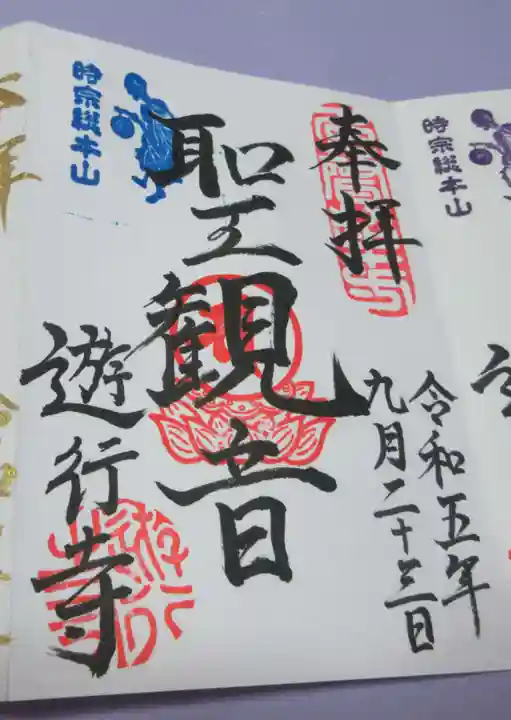 奉拝
令和五年
九月二十三日
聖観音
遊行寺
時宗総本山
時宗総本山